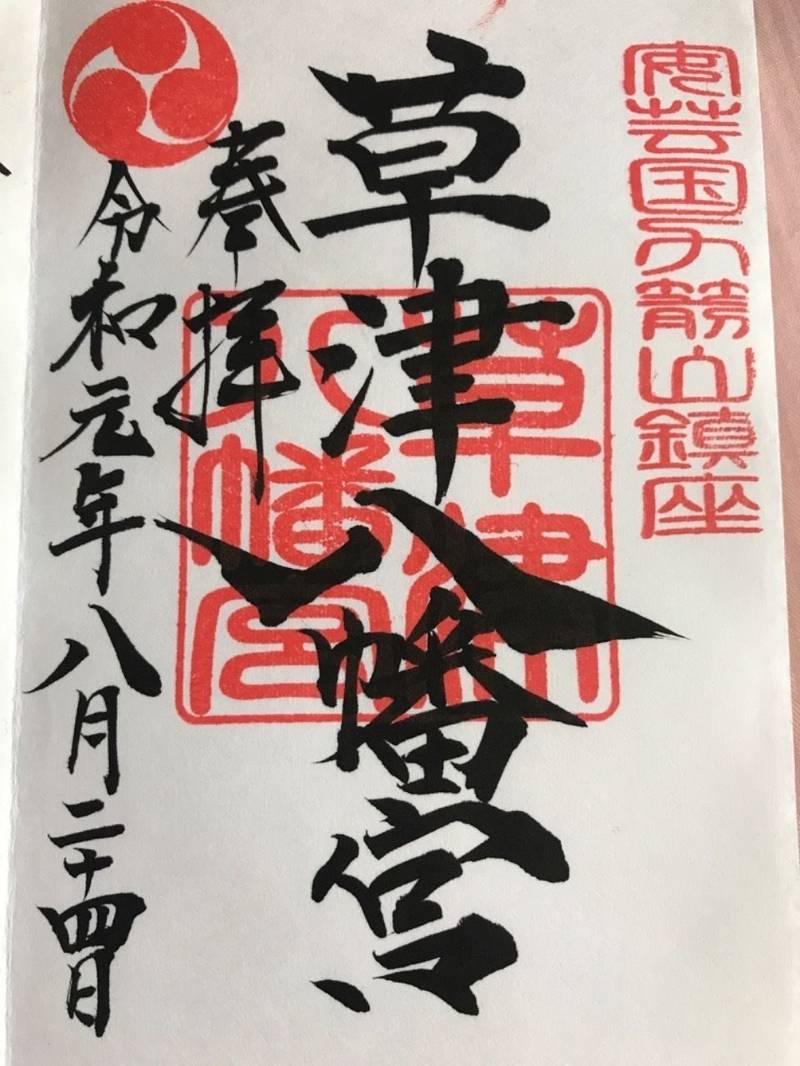 安芸国力箭山鎮座
草津八幡宮
草津
八幡宮
奉拝
令和元年八月二十四日